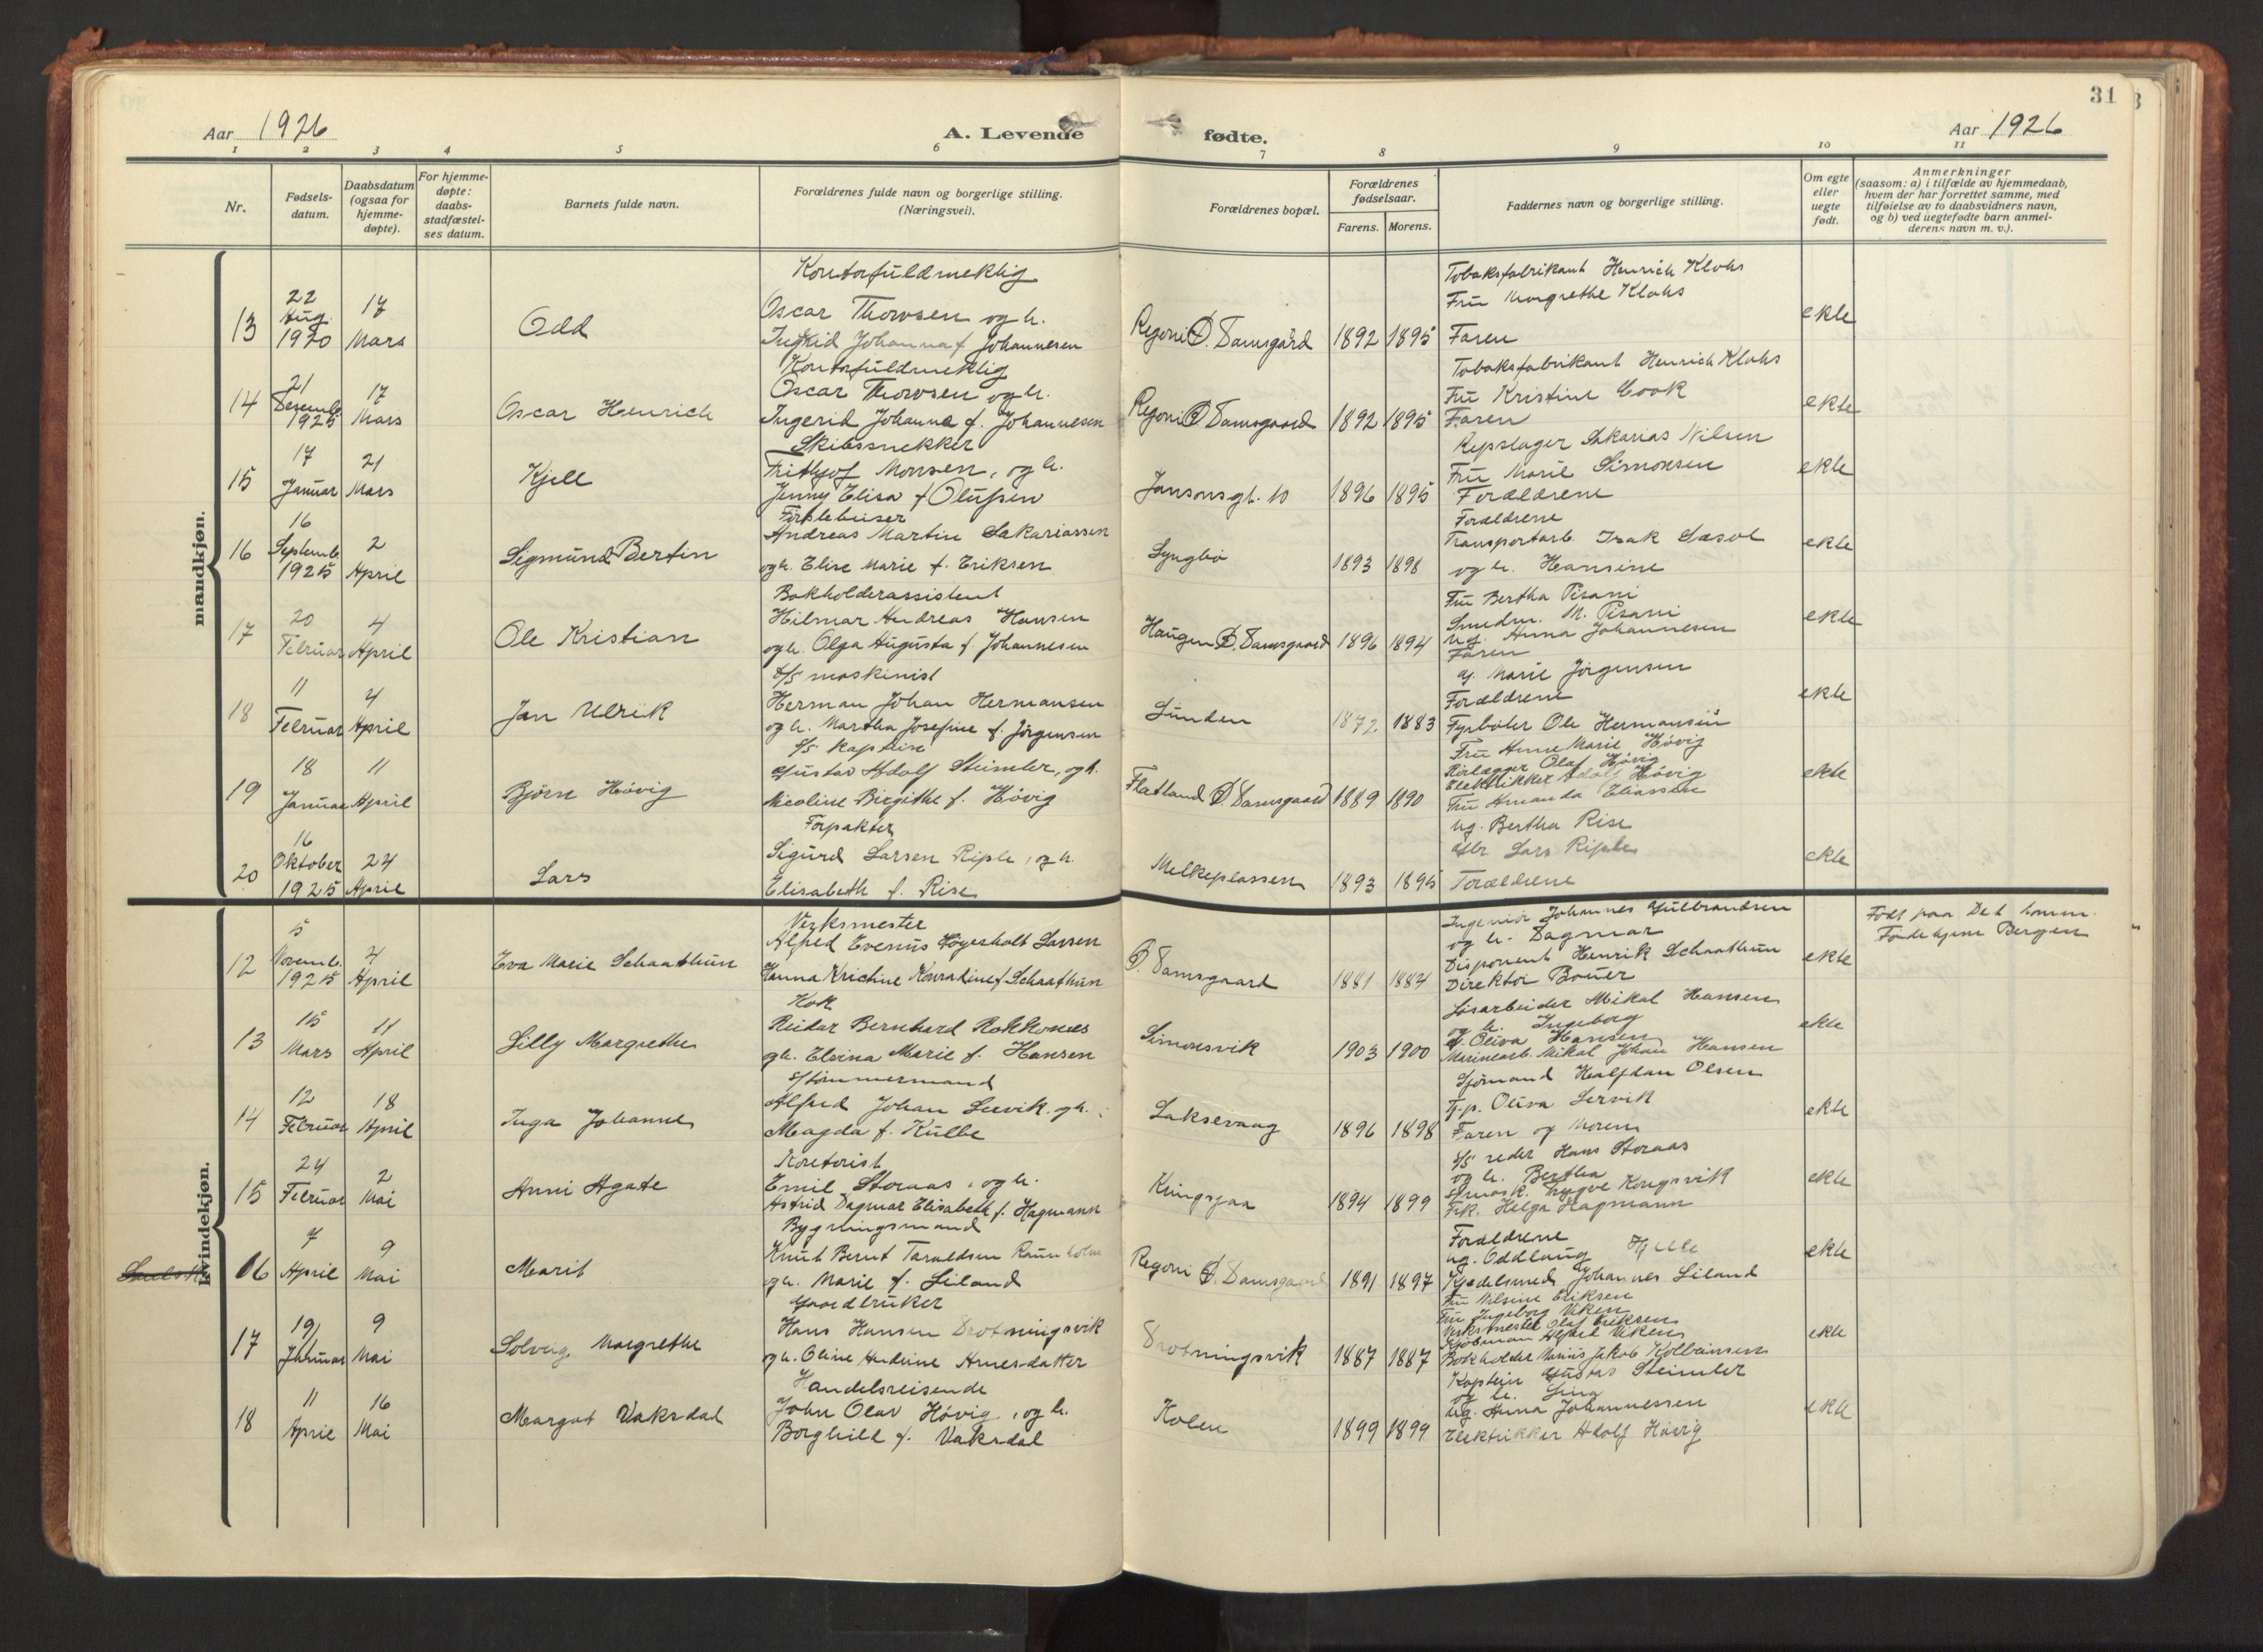 31
Aar 1926
A. Levende fødte.
Aar 1926
1 2 3 4 5 6 7 8 9 10 11
Nr.
Fødsels-
datum.
Daabsdatum
(ogsaa for
hjemme-
døpte).
For hjemme-
døpte:
daabs-
stadfæstel-
ses datum.
Barnets fulde navn.
Forældrenes fulde navn og borgerlige stilling.
(Næringsvei).
Forældrenes bopæl.
Forældrenes
fødselsaar.
Farens. Morens.
Faddernes navn og borgerlige stilling.
Om egte
eller
uegte
født.
Anmerkninger
(saasom: a) i tilfælde av hjemmedaab,
hvem der har forrettet samme, med
tilføielse av to daabsvidners navn,
og b) ved uegtefødte barn anmel-
derens navn m. v.).
mandkjøn.
13
22
Aug.
1920
17
Mars
Odd
Kontorfuldmektig
Oscar Thorvsen og h.
Ingrid Johanna f. Johannesen
Regoni D. Damsgård
1892 1895
Tobaksfabrikant Henrich Klohs
Fru Margrethe Klohs
Faren
ekte
14
21
Desemb.
1925
17
Mars
Oscar Henrich
Kontorfuldmektig
Oscar Thorvsen og h.
Ingerid Johanna f. Johannesen
Regoni D Damsgaard
1892 1895
Tobaksfabrikant Henrich Klohs
Fru Kristine Cook
Faren
ekte
15
17
Januar
21
Mars
Kjell
Skibssnekker
Frithjof Monsen, og h.
Jenny Elisa f. Olufsen
Jansonsgt. 10
1896 1895
Repslager Sakarias Nilsen
Fru Marie Simonsen
Forældrene
ekte
16
16
Septemb.
1925
2
April
Sigmund Bertin
Andreas Martin Sakariassen
og h. Elise Marie f. Eriksen
Lyngbø
1893 1898
Forældrene
Transportarb. Isak Sæsol
og h. Hansine
ekte
17
20
Februar
4
April
Ole Kristian
Bokholderassistent
Hilmar Andreas Hansen
og h. Olga Augusta f. Johannesen
Haugen D. Damsgaard
1896 1894
Fru Bertha Pisani
Smedm. M. Pisani
Ug. Anna Johannesen
Faren
ekte
18
11
Februar
4
April
Jan Ulrik
S/S maskinist
Herman Johan Hermansen
og h. Martha Josefine f. Jørgensen
Lunden
1872 1883
Ug. Marie Jørgensen
Forældrene
Fyrbøter Ole Hermansen
ekte
19
18
Januar
11
April
Bjørn Høvig
S/S kaptein
Gustav Adolf Steimler, og h.
Nicoline Birgithe f. Høvig
Flatland D Damsgaard
1889 1890
Fru Anne Marie Høvig
Rørlægger Olaf Høvig
Elektrikker Adolf Høvig
Fru Amanda Eliassen
ekte
20
16
Oktober
1925
24
April
Lars
Forpakter
Sigurd Larsen Riple, og h.
Elisabeth f. Rise
Melkeplassen
1893 1895
Ug. Bertha Rise
Gbr. Lars Riple
Forældrene
ekte
kvindekjøn.
12
5
Novemb.
1925
4
April
Eva Marie Schaathun
Verksmester
Alfred Evenus Høyesholt Larsen
Hanna Kristine Konradine f. Schaathun
D. Damsgaard
1881 1884
Ingeniør Johannes Gulbrandsen
og h. Dagmar
Disponent Henrik Schaathun
Direktør Bauer
ekte
Født paa Det komm.
Fødehjem Bergen
13
15
Mars
11
April
Lilly Margrethe
Kok
Reidar Bernhard Rokkones
og h. Elvina Marie f. Hansen
Simonsvik
1903 1900
Løsarbeider Mikal Hansen
og h. Ingeborg
Ug. Oliva Hansen
Marinearb. Mikal Johan Hansen
ekte
14
12
Februar
18
April
Inga Johanne
S/tømmermand
Alfred Johan Lervik og h.
Magda f. Kulbe
Laksevaag
1896 1898
Sjømand Halfdan Olsen
Tj.p. Oliva Lervik
Faren og Moren
ekte
15
24
Februar
2
Mai
Anni Agate
Kontorist
Emil Storaas, og h.
Astrid Dagmar Elisabeth f. Hagmann
Kringsjaa
1894 1899
S/S reder Hans Storaas
og h. Bertha
S/mask. Trygve Kongsvik
Frk. Helga Hagmann
ekte
16
7
April
9
Mai
Marit
Bygningsmand
Knut Bernt Taraldsen Raunholm
og h. Marie f. Liland
Regoni D. Damsgaard
1891 1897
Forældrene
Ug. Oddlaug Hjelle
Kjedelsmed Johannes Liland
ekte
17
19
Januar
9
Mai
Solveig Margrethe
Gaardbruker
Hans Hansen Drotningsvik
og h. Oline Andrine Arnesdatter
Drotningsvik
1887 1887
Fru Nilsine Eriksen
Fru Ingeborg Viken
Verksmester Olaf Eriksen
Kjøbman Alfred Viken
Bokholder Marius Jakob Kolbeinsen
ekte
18
11
April
16
Mai
Margot Vaksdal
Handelsreisende
John Olav Høvig, og h.
Borghild f. Vaksdal
Holen
1899 1899
Kaptein Gustav Steimler
og h. Lina
Ug. Anna Johannessen
Elektrikker Adolf Høvig
ekte